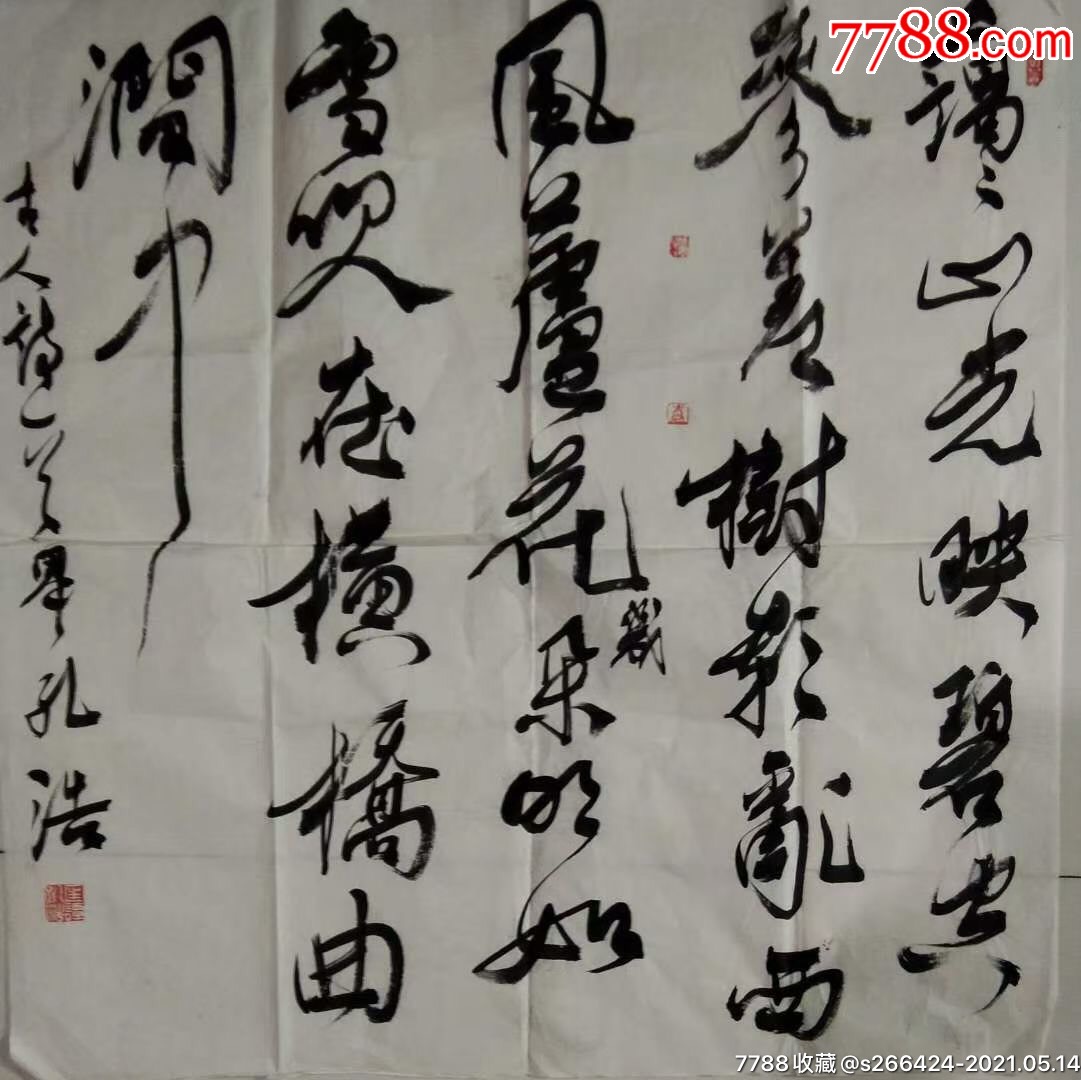 靄〻山光映碧空
參差樹影亂西
風蘆花朵明如
幾
雪在橫橋曲
澗中
古人詩一首 孔浩
7788.com
7788收藏@s266424-2021.05.14